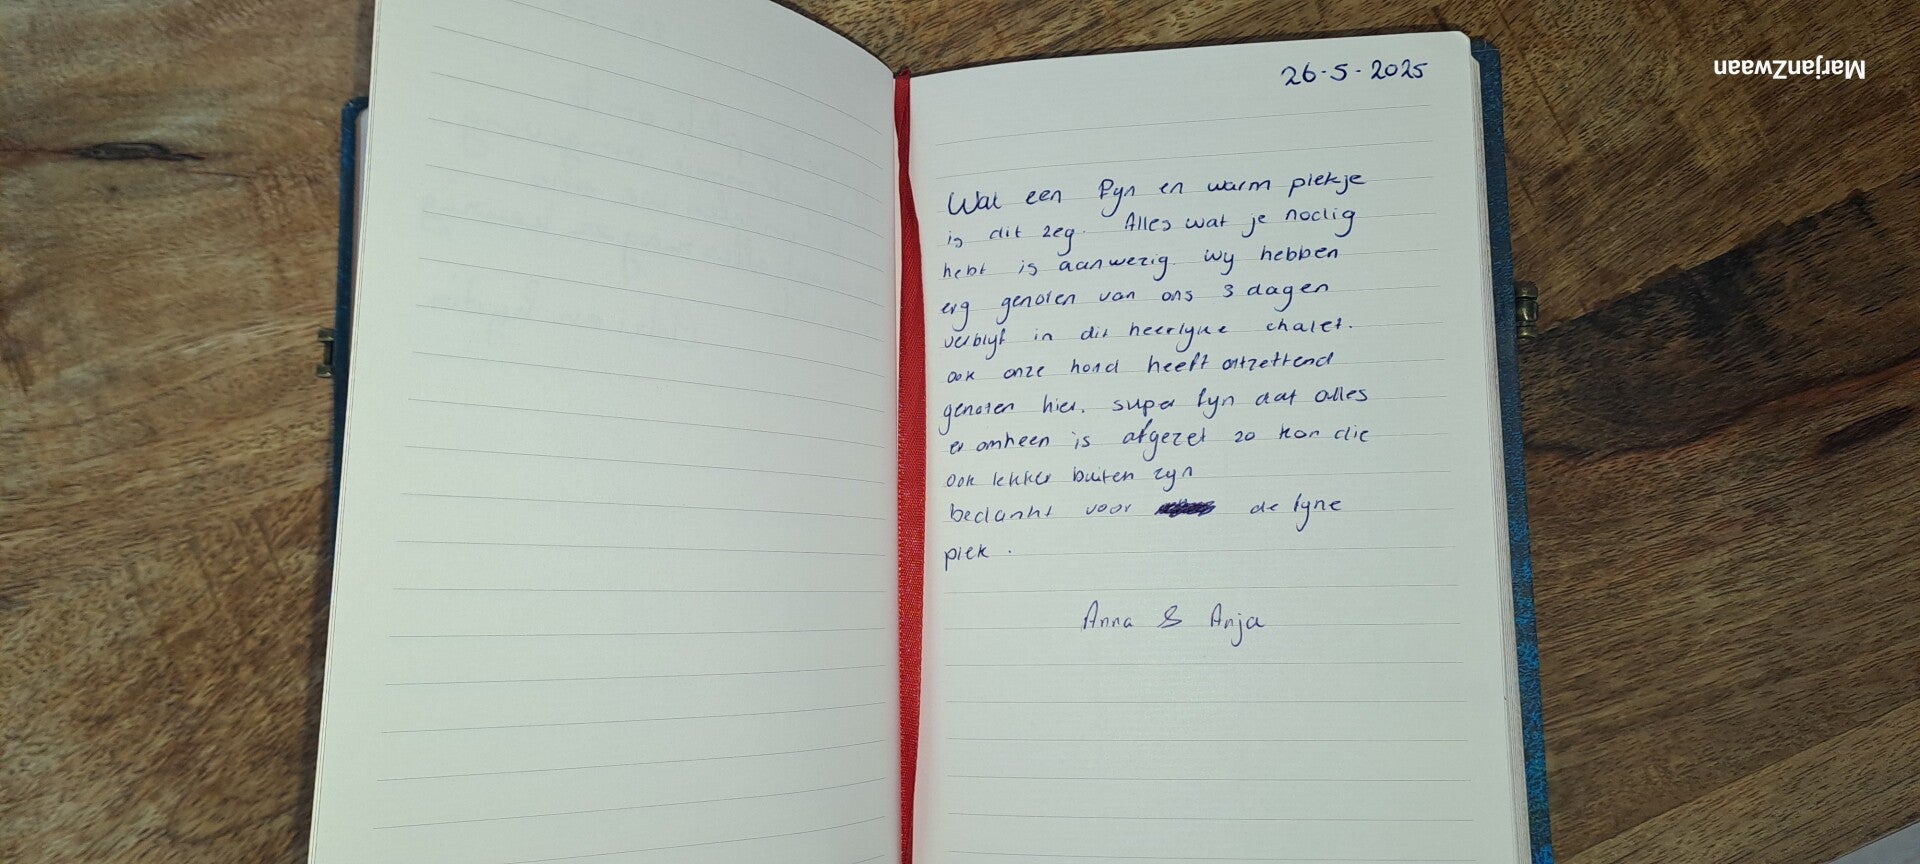 26-5-2025
Wat een fyn en warm plekje
is dit zeg. Alles wat je nodig
hebt is aanwezig. wy hebben
erg genoten van ons 3 dagen
verblyf in dit heerlyke chalet.
ook onze hond heeft ontzettend
genoten hier. super fyn dat alles
er omheen is afgezet zo kon die
ook lekker buiten zyn
bedankt voor de fyne
plek.
Anna & Anja
MarjanZwaan